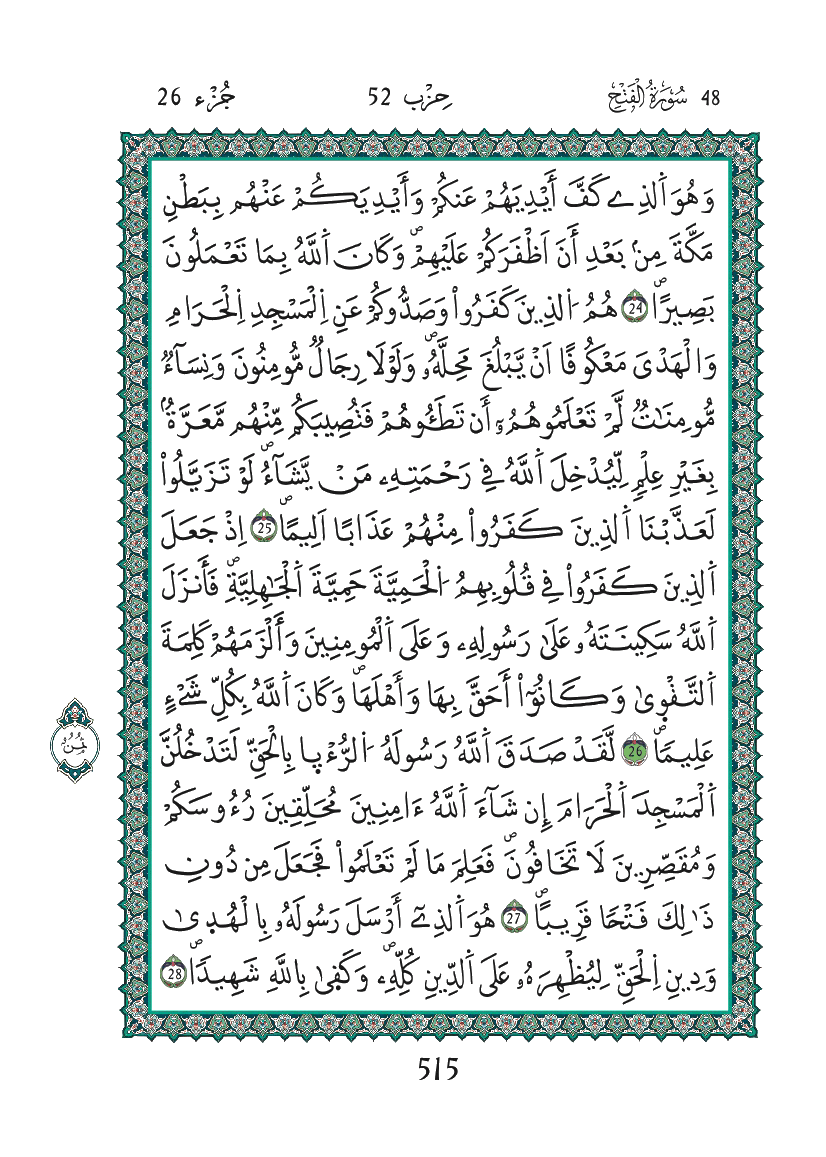 48 سُورَةُ الْفَتْحِ حِزْب 52 جُزْء 26
وَهُوَ اَ۬لذِے كَفَّ أَيْدِيَهُمْ عَنكُمْ وَأَيْدِيَكُمْ عَنْهُم بِبَطْنِ
مَكَّةَ مِنۢ بَعْدِ أَنَ اَظْفَرَكُمْ عَلَيْهِمْۖ وَكَانَ اَ۬للَّهُ بِمَا تَعْمَلُونَ
بَصِيراًۖ 24 هُمُ اُ۬لذِينَ كَفَرُواْ وَصَدُّوكُمْ عَنِ اِ۬لْمَسْجِدِ اِ۬لْحَرَامِ
وَالْهَدْيَ مَعْكُوفًا اَنْ يَّبْلُغَ مَحِلَّهُۥۖ وَلَوْلَا رِجَالٌ مُّومِنُونَ وَنِسَآءٌ
مُّومِنَٰتٌ لَّمْ تَعْلَمُوهُمُۥٓ أَن تَطَـُٔوهُمْ فَتُصِيبَكُم مِّنْهُم مَّعَرَّةُۢ
بِغَيْرِ عِلْمٖ لِّيُدْخِلَ اَ۬للَّهُ فِے رَحْمَتِهِۦ مَنْ يَّشَآءُۖ لَوْ تَزَيَّلُواْ
لَعَذَّبْنَا اَ۬لذِينَ كَفَرُواْ مِنْهُمْ عَذَابًا اَلِيمًاۖ 25 اِذْ جَعَلَ
اَ۬لذِينَ كَفَرُواْ فِے قُلُوبِهِمُ اُ۬لْحَمِيَّةَ حَمِيَّةَ اَ۬لْجَٰهِلِيَّةِۖ فَأَنزَلَ
اَ۬للَّهُ سَكِينَتَهُۥ عَلَىٰ رَسُولِهِۦ وَعَلَى اَ۬لْمُومِنِينَ وَأَلْزَمَهُمْ كَلِمَةَ
اَ۬لتَّقْوٜىٰ وَكَانُوٓاْ أَحَقَّ بِهَا وَأَهْلَهَاۖ وَكَانَ اَ۬للَّهُ بِكُلِّ شَےْءٍ
عَلِيماًۖ 26 لَّقَدْ صَدَقَ اَ۬للَّهُ رَسُولَهُ اُ۬لرُّءْيٜا بِالْحَقِّ لَتَدْخُلُنَّ
اَ۬لْمَسْجِدَ اَ۬لْحَرَامَ إِن شَآءَ اَ۬للَّهُ ءَامِنِينَ مُحَلِّقِينَ رُءُوسَكُمْ
وَمُقَصِّرِينَ لَا تَخَافُونَۖ فَعَلِمَ مَا لَمْ تَعْلَمُواْ فَجَعَلَ مِن دُونِ
ذَٰلِكَ فَتْحًا قَرِيباًۖ 27 هُوَ اَ۬لذِےٓ أَرْسَلَ رَسُولَهُۥ بِالْهُدٜىٰ
وَدِينِ اِ۬لْحَقِّ لِيُظْهِرَهُۥ عَلَى اَ۬لدِّينِ كُلِّهِۦۖ وَكَفٜىٰ بِاللَّهِ شَهِيداًۖ 28
ثُمُن
515